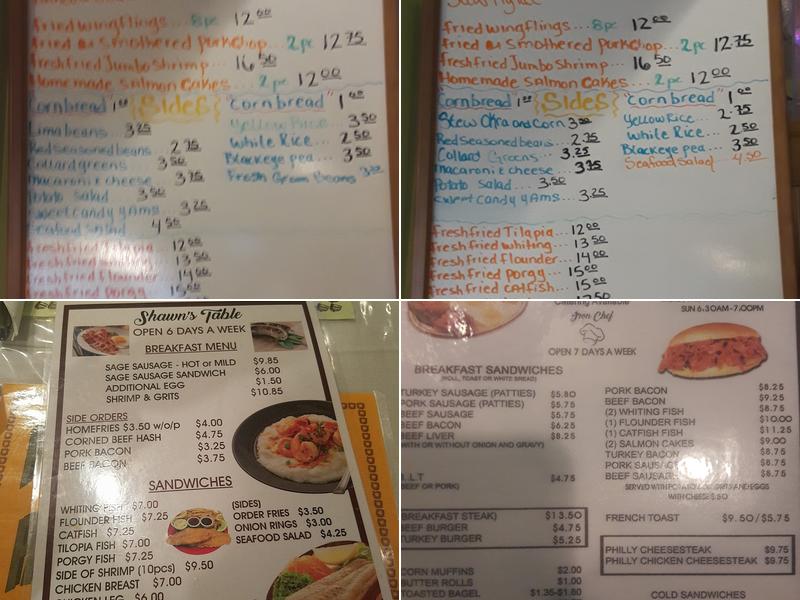 fried wingflings... 8pc 12.00
fried or smothered porkchop... 2pc 12.75
fresh fried Jumbo Shrimp... 16.50
Homemade salmon cakes.. 2pc 12.00
Cornbread 1.00 {Sides} "Cornbread" 1.00
Lima beans... 3.25
Yellow Rice... 3.50
Red seasoned beans.. 2.75
While Rice... 2.50
Collard greens... 3.50
Blackeye pea... 3.50
macaroni & cheese 3.75
Fresh Green Beans
Potato salad 3.50
sweet candy yams.. 3.25
Seafood Salad 4.50
freshfried Tilapia... 12.00
freshfried whiting... 13.50
freshfried flounder... 14.00
freshfried Porgy... 15.00
fried wingflings... 8pc 12.00
fried or smothered porkchop.. 2pc 12.75
fresh fried Jumbo Shrimp... 16.50
Homemade salmon cakes.. 2pc 12.00
Cornbread {Sides} "Cornbread" 1.00
Stew Okra and Corn 3.50
Yellow Rice... 2.75
Red seasoned beans... 2.75
While Rice... 2.50
Collard Greens... 3.25
Blackeye pea... 3.50
macaroni & cheese... 3.75
Seafood Salad 4.50
Potato salad... 3.50
sweet candy yams... 3.25
freshfried Tilapia... 12.00
freshfried whiting... 13.50
freshfried flounder... 14.00
freshfried porgy... 15.00
freshfried catfish... 15.00
Shawn's Table
OPEN 6 DAYS A WEEK
BREAKFAST MENU
SAGE SAUSAGE - HOT or MILD $9.85
SAGE SAUSAGE SANDWICH $6.00
ADDITIONAL EGG $1.50
SHRIMP & GRITS $10.85
SIDE ORDERS
HOMEFRIES $3.50 w/o/p $4.00
CORNED BEEF HASH $4.75
PORK BACON $3.25
BEEF BACON $3.75
SANDWICHES
WHITING FISH $7.00
FLOUNDER FISH $7.25
CATFISH $7.25
TILOPIA FISH $7.00
PORGY FISH $7.25
SIDE OF SHRIMP (10pcs) $9.50
CHICKEN BREAST $7.00
CHICKEN LEG $6.00
(SIDES)
ORDER FRIES $3.50
ONION RINGS $3.00
SEAFOOD SALAD $4.25
Catering Available
Iron Chef
OPEN 7 DAYS A WEEK
SUN 6:30AM-7:00PM
BREAKFAST SANDWICHES
(ROLL, TOAST OR WHITE BREAD)
TURKEY SAUSAGE (PATTIES) $5.80
PORK SAUSAGE (PATTIES) $5.75
BEEF SAUSAGE $5.75
BEEF BACON $6.25
BEEF LIVER $8.25
(WITH OR WITHOUT ONION AND GRAVY)
B.L.T $4.75
(BEEF OR PORK)
(BREAKFAST STEAK) $13.50
BEEF BURGER $4.75
TURKEY BURGER $5.25
CORN MUFFINS $2.00
BUTTER ROLLS $1.00
TOASTED BAGEL $1.35-$1.60
PORK BACON $8.25
BEEF BACON $9.25
(2) WHITING FISH $8.75
(1) FLOUNDER FISH $10.00
(1) CATFISH FISH $11.25
(2) SALMON CAKES $9.00
TURKEY BACON $8.75
PORK SAUSAGE $8.75
BEEF SAUSAGE $8.75
SERVED WITH POTATO OR GRITS AND EGGS
WITH CHEESE $.50
FRENCH TOAST $9.50/$5.75
PHILLY CHEESESTEAK $9.75
PHILLY CHICKEN CHEESESTEAK $9.75
COLD SANDWICHES